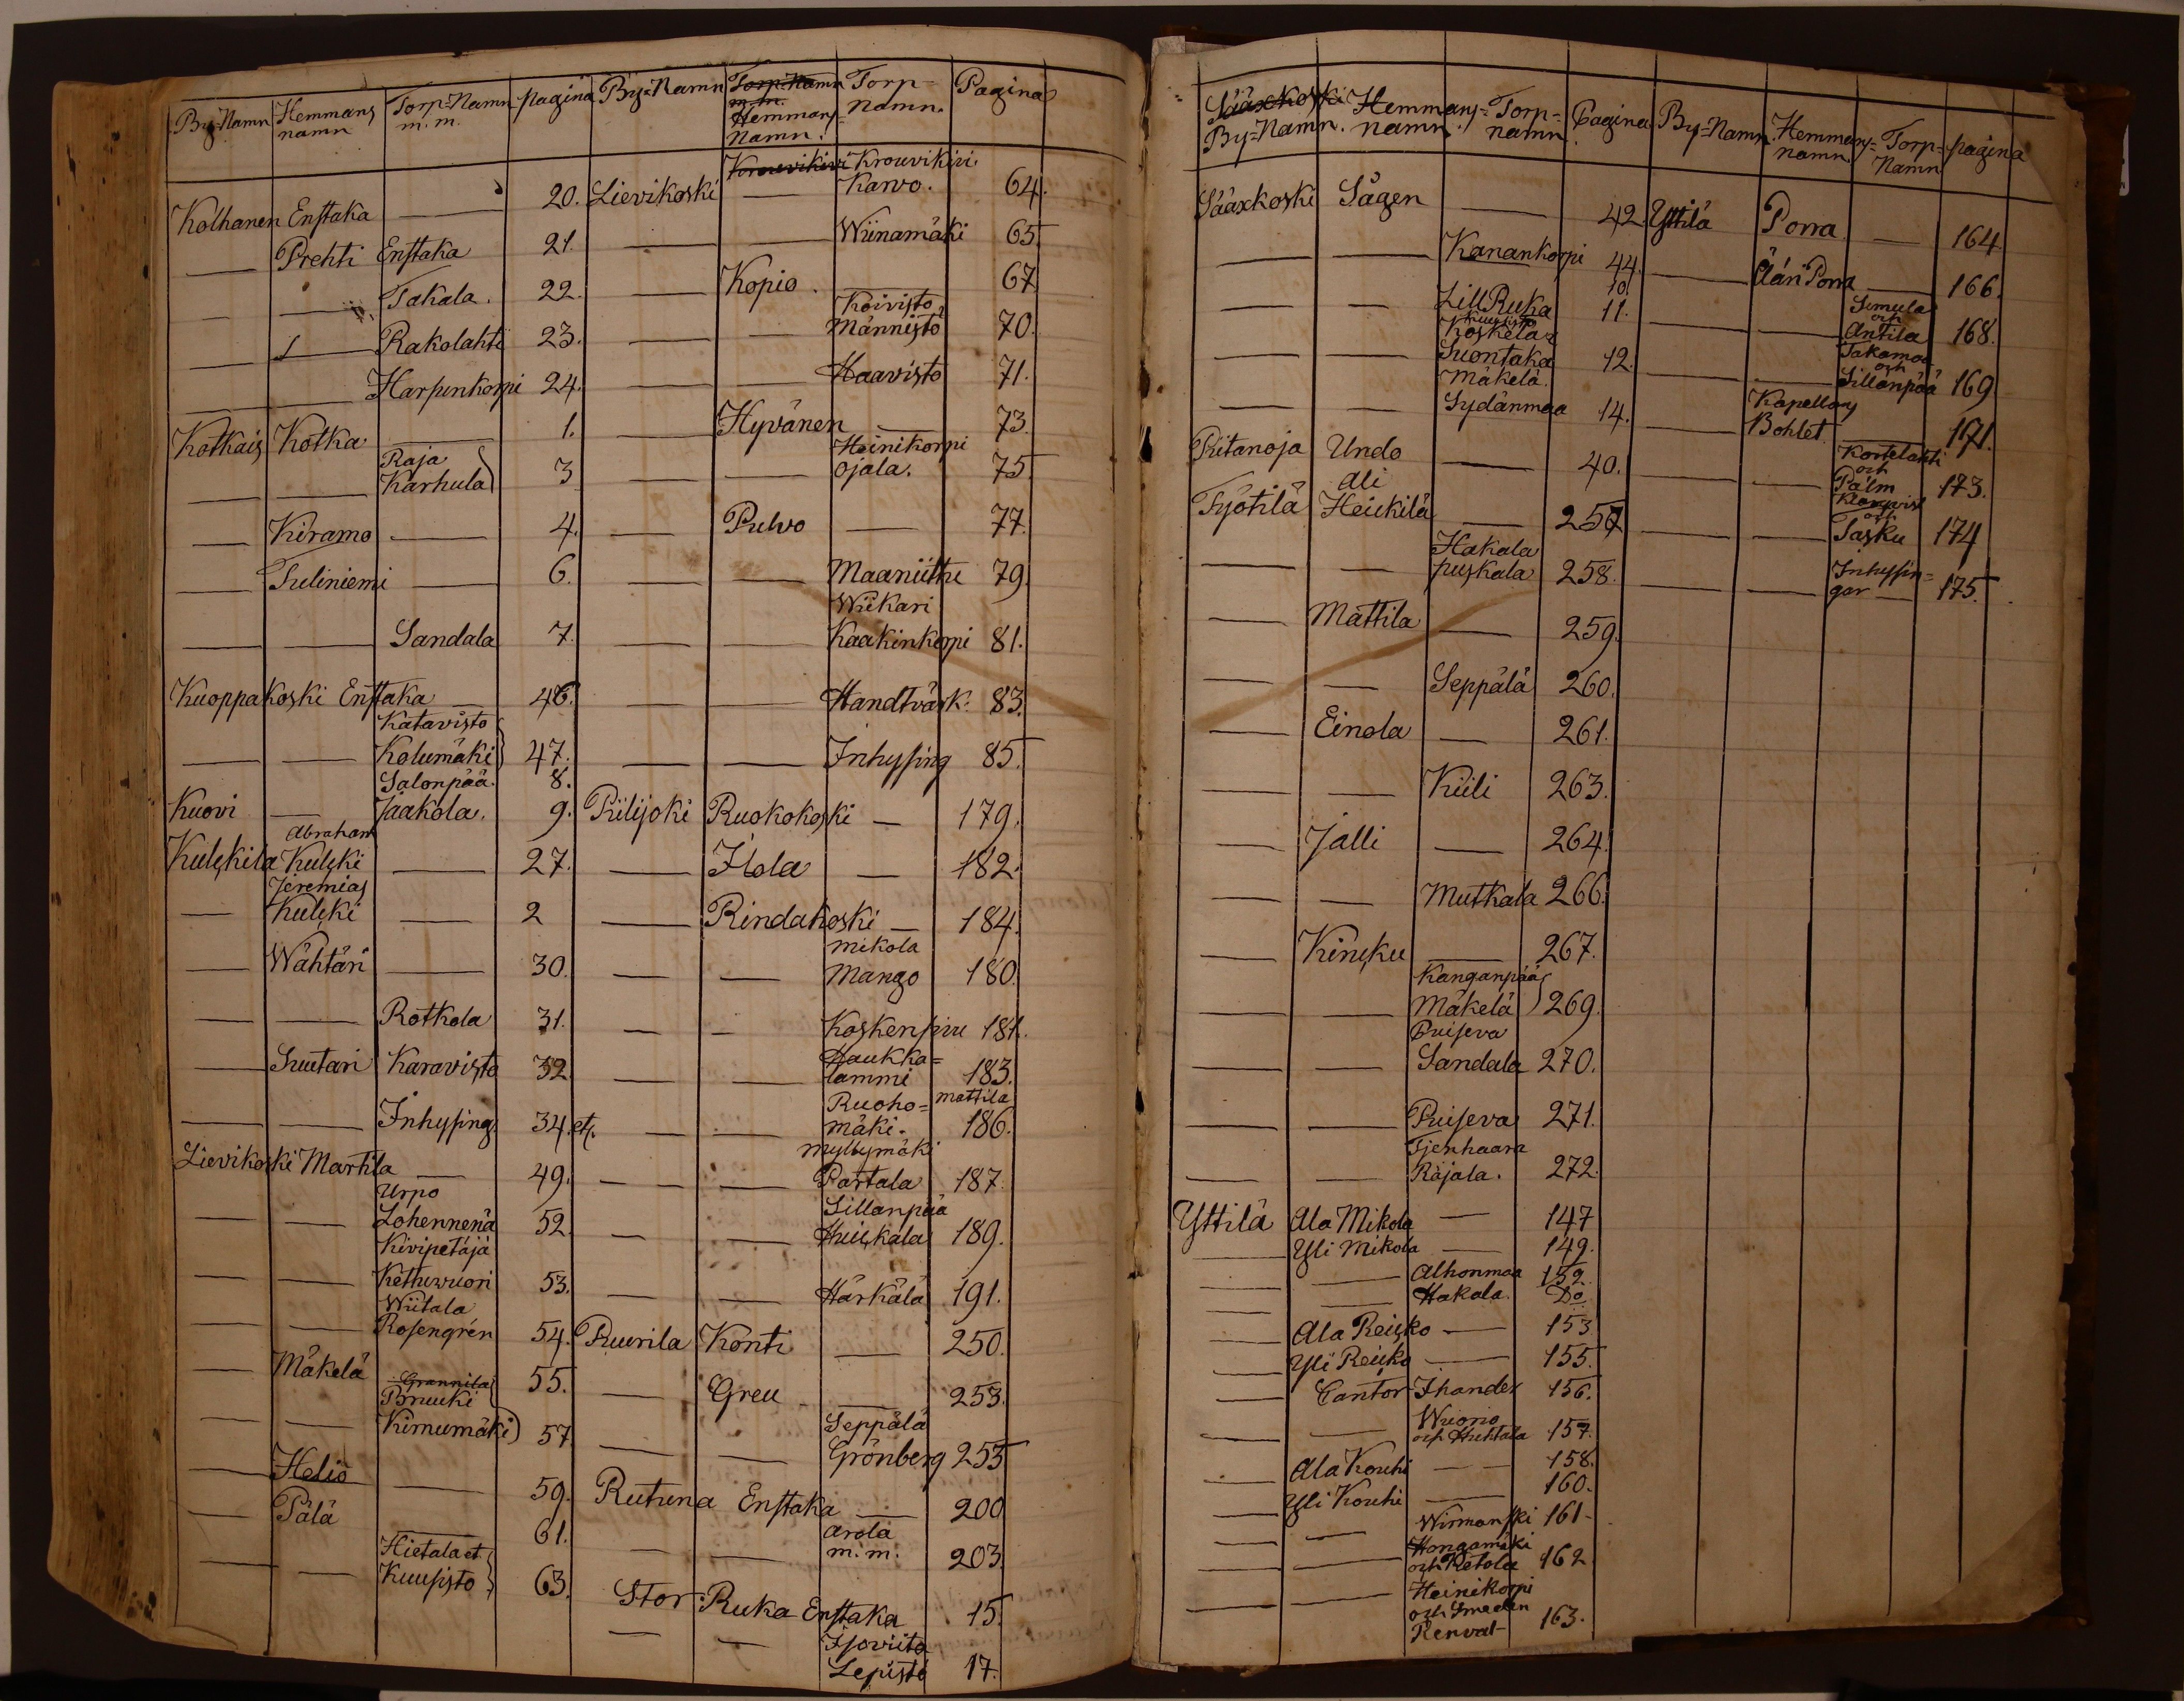 By=Namn Hemmans namn Torp=Namn m.m. pagina
Kolhanen Enstaka — 20.
— Prehti Enstaka 21.
— — Takala. 22.
— — Rakolahti 23.
— — Harpunkorpi 24.
Kotkais Kotka — 1.
Raja
— — Karhula 3
— Kiramo — 4.
— Suliniemi — 6.
— — Sandala 7.
Kuoppakoski Enstaka — 46.
Katavisto
— — Kolumäki 47.
Salonpää. 8.
Kuovi — Jaakola. 9.
Abraham
Kulskila Kulski — 27.
Jeremias
— Kulski — 2
— Wähtäri — 30.
— — Rotkola 31.
— Suutari Karavisto 32
— — Inhysing 34. et.
Lievikoski Martila — 49.
Urpo
— — Lohennenä 52.
Kivipetäjä
— — Kethuvuori 53.
Wiitala
— — Rosengrén 54.
— Mäkelä Grannila 55.
Bruuki
— — Kirnumäki 57
— Helio — 59.
— Pälä — 61.
Hietala et
— — Kuusisto 63.
By=Namn Torp-Namn m.m. Hemmans=Namn. Torp-namn. Pagina
Krouvikivi Krouvikivi.
Lievikoski — Karvo. 64.
— — Wiinamäki 65.
— Kopio. — 67
Koivisto
— — Männistö 70.
— — Haavisto 71.
— Hyvänen — 73.
Heinikorpi
— — Ojala. 75
— Pulvo — 77.
— — Maaniithu 79.
Wiikari
— — Kaakinkorpi 81.
— — Handtvärk. 83.
— — Inhysing 85.
Piilijoki Ruokokoski — 179.
— Ilola — 182.
— Rindakoski — 184.
Mikola
— — Mango 180.
— — Koskenpiru 181.
Haukka=
— — lammi 183.
Ruoho= mattila
— — mäki. 186.
Myllymäki
— — Partala 187.
Sillanpää
— — Huiskala 189.
— — Härkälä 191.
Puurila Konti — 250.
— Greu — 253.
Seppälä
— — Grönberg 255
Rutuna Enstaka — 200
Arola
— — m.m. 203.
Stor: Ruka Enstaka 15.
Isoviita
— — Lepistö 17.
Sääxkoski
By=Namn. Hemmans=namn. Torp=namn. Pagina
Sääxkoski Sågen — 42.
— — Kanankorpi 44.
10.
— — Lill Ruka 11.
Kuusisto
Koskela
— — Suontaka 12.
Mäkelä.
— — Sydänmaa 14.
Piitanoja Undo — 40.
Ali
Työtilä Heickilä — 257
Hakala
— — puskala 258.
— Mattila — 259.
— — Seppälä 260.
— Einola — 261.
— — Kiili 263.
— Jälli — 264.
— — Mutkala 266.
— Kinsku — 267.
Kanganpää
— — Mäkelä 269.
Puiseva
— — Sandala 270.
— — Puiseva 271.
Tjenhaara
— — Räjala. 272.
Yttilä Ala Mikola — 147
— Yli Mikola — 149.
— — Alhonmaa 152.
— — Hakala. Do
— Ala Reisko — 153
— Yli Reisko — 155.
— Cantor Ihander 156.
Wuorio
— — och Huhtala 157.
— Ala Kouhi — 158.
— Yli Kouhi — 160.
— — Wirmanski 161-
Hongamäki
— — och Ketola 162
Heinikorpi
— — och Smeden
Renval- 163.
By=Namn. Hemmans=namn Torp=Namn pagina
Yttilä Porra — 164.
— Ään Porra — 166.
Simula
och
— — Antila 168.
Takamaa
och
— — Sillanpää 169
Kapellans
— Bohlet. — 171.
Kortelahti
och
— — Palm 173.
och
— — Tasku 174
Inhysin=
— — gar — 175.